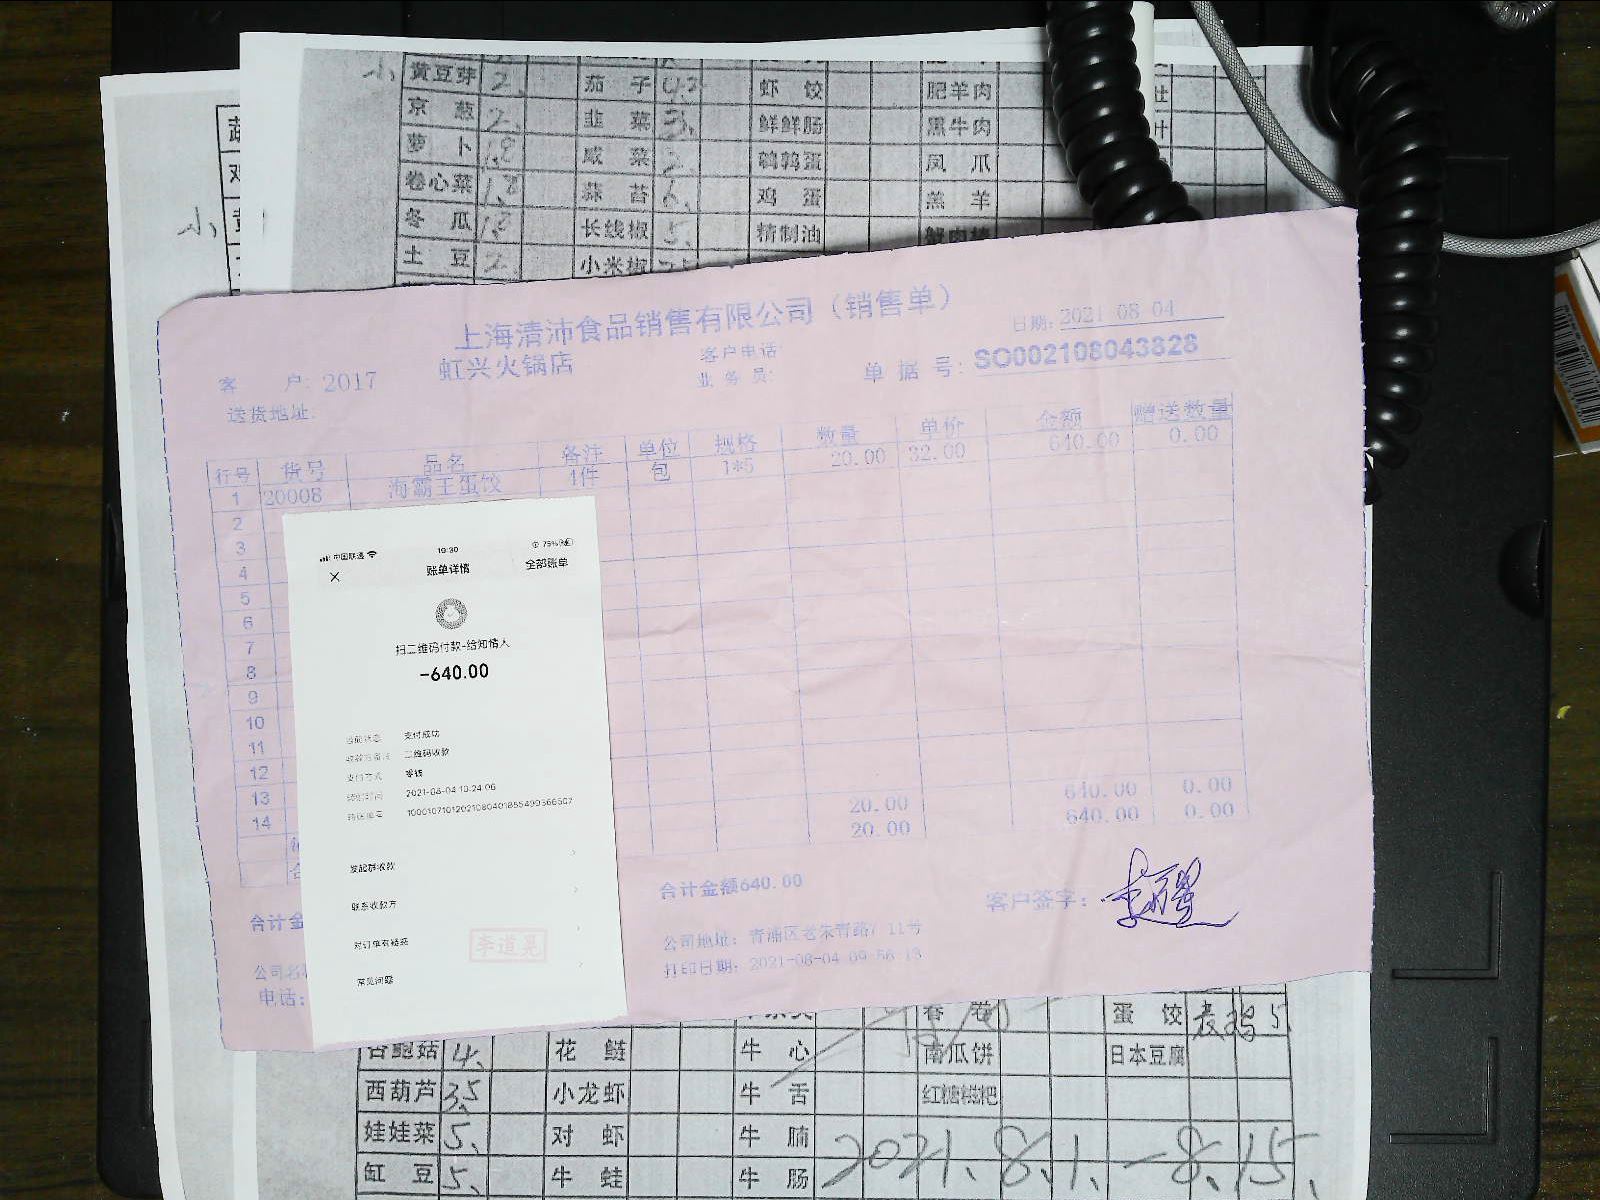 小 黄豆芽 2. 茄子 虾饺 肥羊肉
京葱 2. 韭菜 3. 鲜鲜肠 黑牛肉
萝卜 1.8 咸菜 2. 鹌鹑蛋 凤爪
卷心菜 1.8 蒜苔 6. 鸡蛋 羔羊
小. 冬瓜 1.8 长线椒 5. 精制油 蟹肉棒
土豆 2. 小米椒
上海清沛食品销售有限公司（销售单）
日期: 2021-08-04
客户: 2017 虹兴火锅店 客户电话:
业务员: 单据号: SO002108043828
送货地址:
行号 货号 品名 备注 单位 规格 数量 单价 金额 赠送数量
1 20008 海霸王蛋饺 4件 包 1*5 20.00 32.00 640.00 0.00
2
3
4
5
6
7
8
9
10
11
12
13
14
20.00 640.00 0.00
20.00 640.00 0.00
合计金
合计金额640.00
客户签字:
公司地址: 青浦区老朱青路711号
打印日期: 2021-08-04 09:56:13
公司名
电话:
中国联通 19:30 75%
账单详情 全部账单
扫二维码付款-给知情人
-640.00
当前状态 支付成功
收款方备注 二维码收款
支付方式 零钱
转账时间
转账单号
发起群收款
联系收款方
对订单有疑惑
常见问题
李道晃
春卷 蛋饺 5.
杏鲍菇 4. 花鲢 牛心 南瓜饼 日本豆腐
西葫芦 3.5 小龙虾 牛舌 红糖糍粑
娃娃菜 5. 对虾 牛腩
缸豆 5. 牛蛙 牛肠
2021.8.1.-8.15.